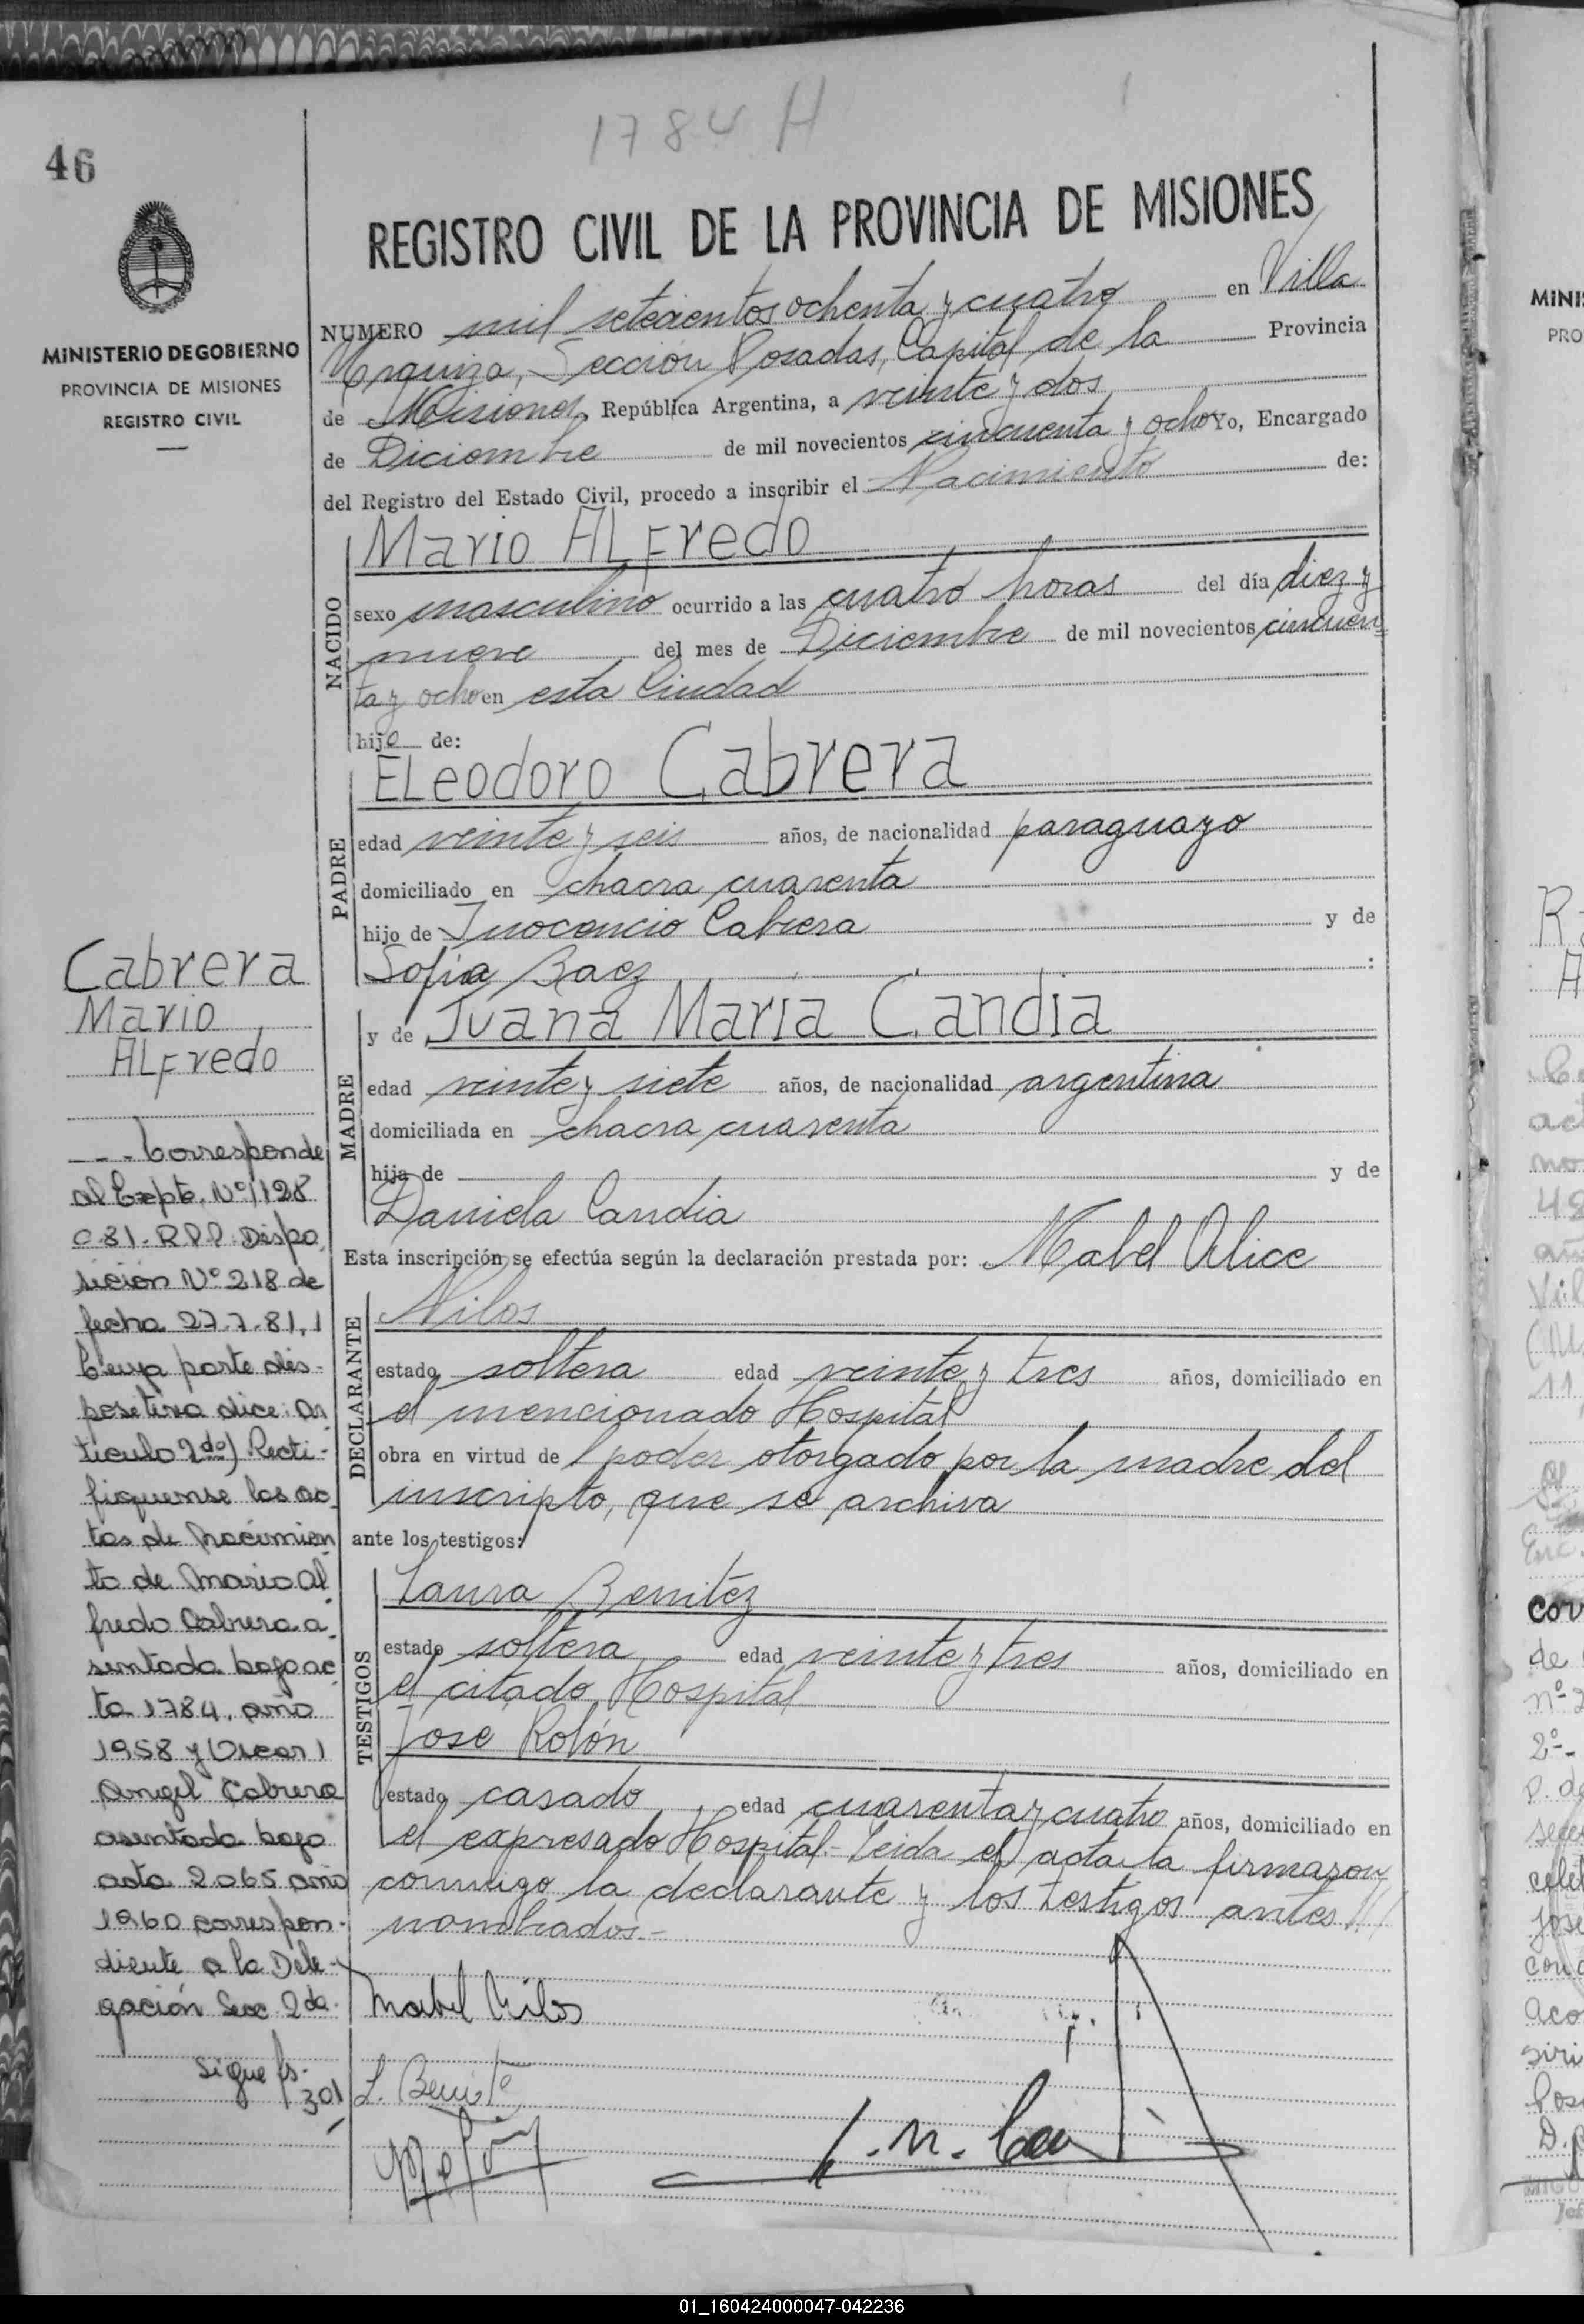 1784 H
46
REGISTRO CIVIL DE LA PROVINCIA DE MISIONES
MINISTERIO DE GOBIERNO
PROVINCIA DE MISIONES
REGISTRO CIVIL
NUMERO mil setecientos ochenta y cuatro en Villa
Urquiza, Sección Posadas, Capital de la Provincia
de Misiones, República Argentina, a veinte y dos
de Diciembre de mil novecientos cincuenta y ocho Yo, Encargado
del Registro del Estado Civil, procedo a inscribir el Nacimiento de:
NACIDO
Mario ALFredo
sexo masculino ocurrido a las cuatro horas del día diez y
nueve del mes de Diciembre de mil novecientos cincuen
ta y ocho en esta Ciudad
hijo de:
PADRE
ELeodoro Cabrera
edad veinte y seis años, de nacionalidad paraguayo
domiciliado en chacra cuarenta
hijo de Inocencio Cabrera y de
Sofía Baez :
MADRE
y de Juana María Candia
edad veinte y siete años, de nacionalidad argentina
domiciliada en chacra cuarenta
hija de y de
Daniela Candia
Esta inscripción se efectúa según la declaración prestada por: Mabel Alice
DECLARANTE
Nilos
estado soltera edad veinte y tres años, domiciliado en
el mencionado Hospital
obra en virtud de poder otorgado por la madre del
inscripto, que se archiva
ante los testigos:
TESTIGOS
Laura Benitez
estado soltera edad veinte y tres años, domiciliado en
el citado Hospital
José Rolón
estado casado edad cuarenta y cuatro años, domiciliado en
el expresado Hospital.- Leida el acta la firmaron
conmigo la declarante y los testigos antes
nombrados.-
Mabel Nilos
L. Benite
Cabrera
Mario
ALFredo
--- Corresponde
al Expte. Nº 1128
C.81. R.P.P. Dispo
sición Nº 218 de
fecha 27.7.81,
Cuya parte dis-
positiva dice: Ar
tículo 2do) Recti-
fíquense las ac
tas de Nacimien
to de Mario Al
fredo Cabrera a
sentada bajo ac
ta 1784, año
1958 y Oscar
Angel Cabrera
asentada bajo
acta 2065 año
1960 correspon-
diente a la Dele-
gación Secc 2da.
Sigue fs.
301
MINIS
PRO
01_160424000047-042236